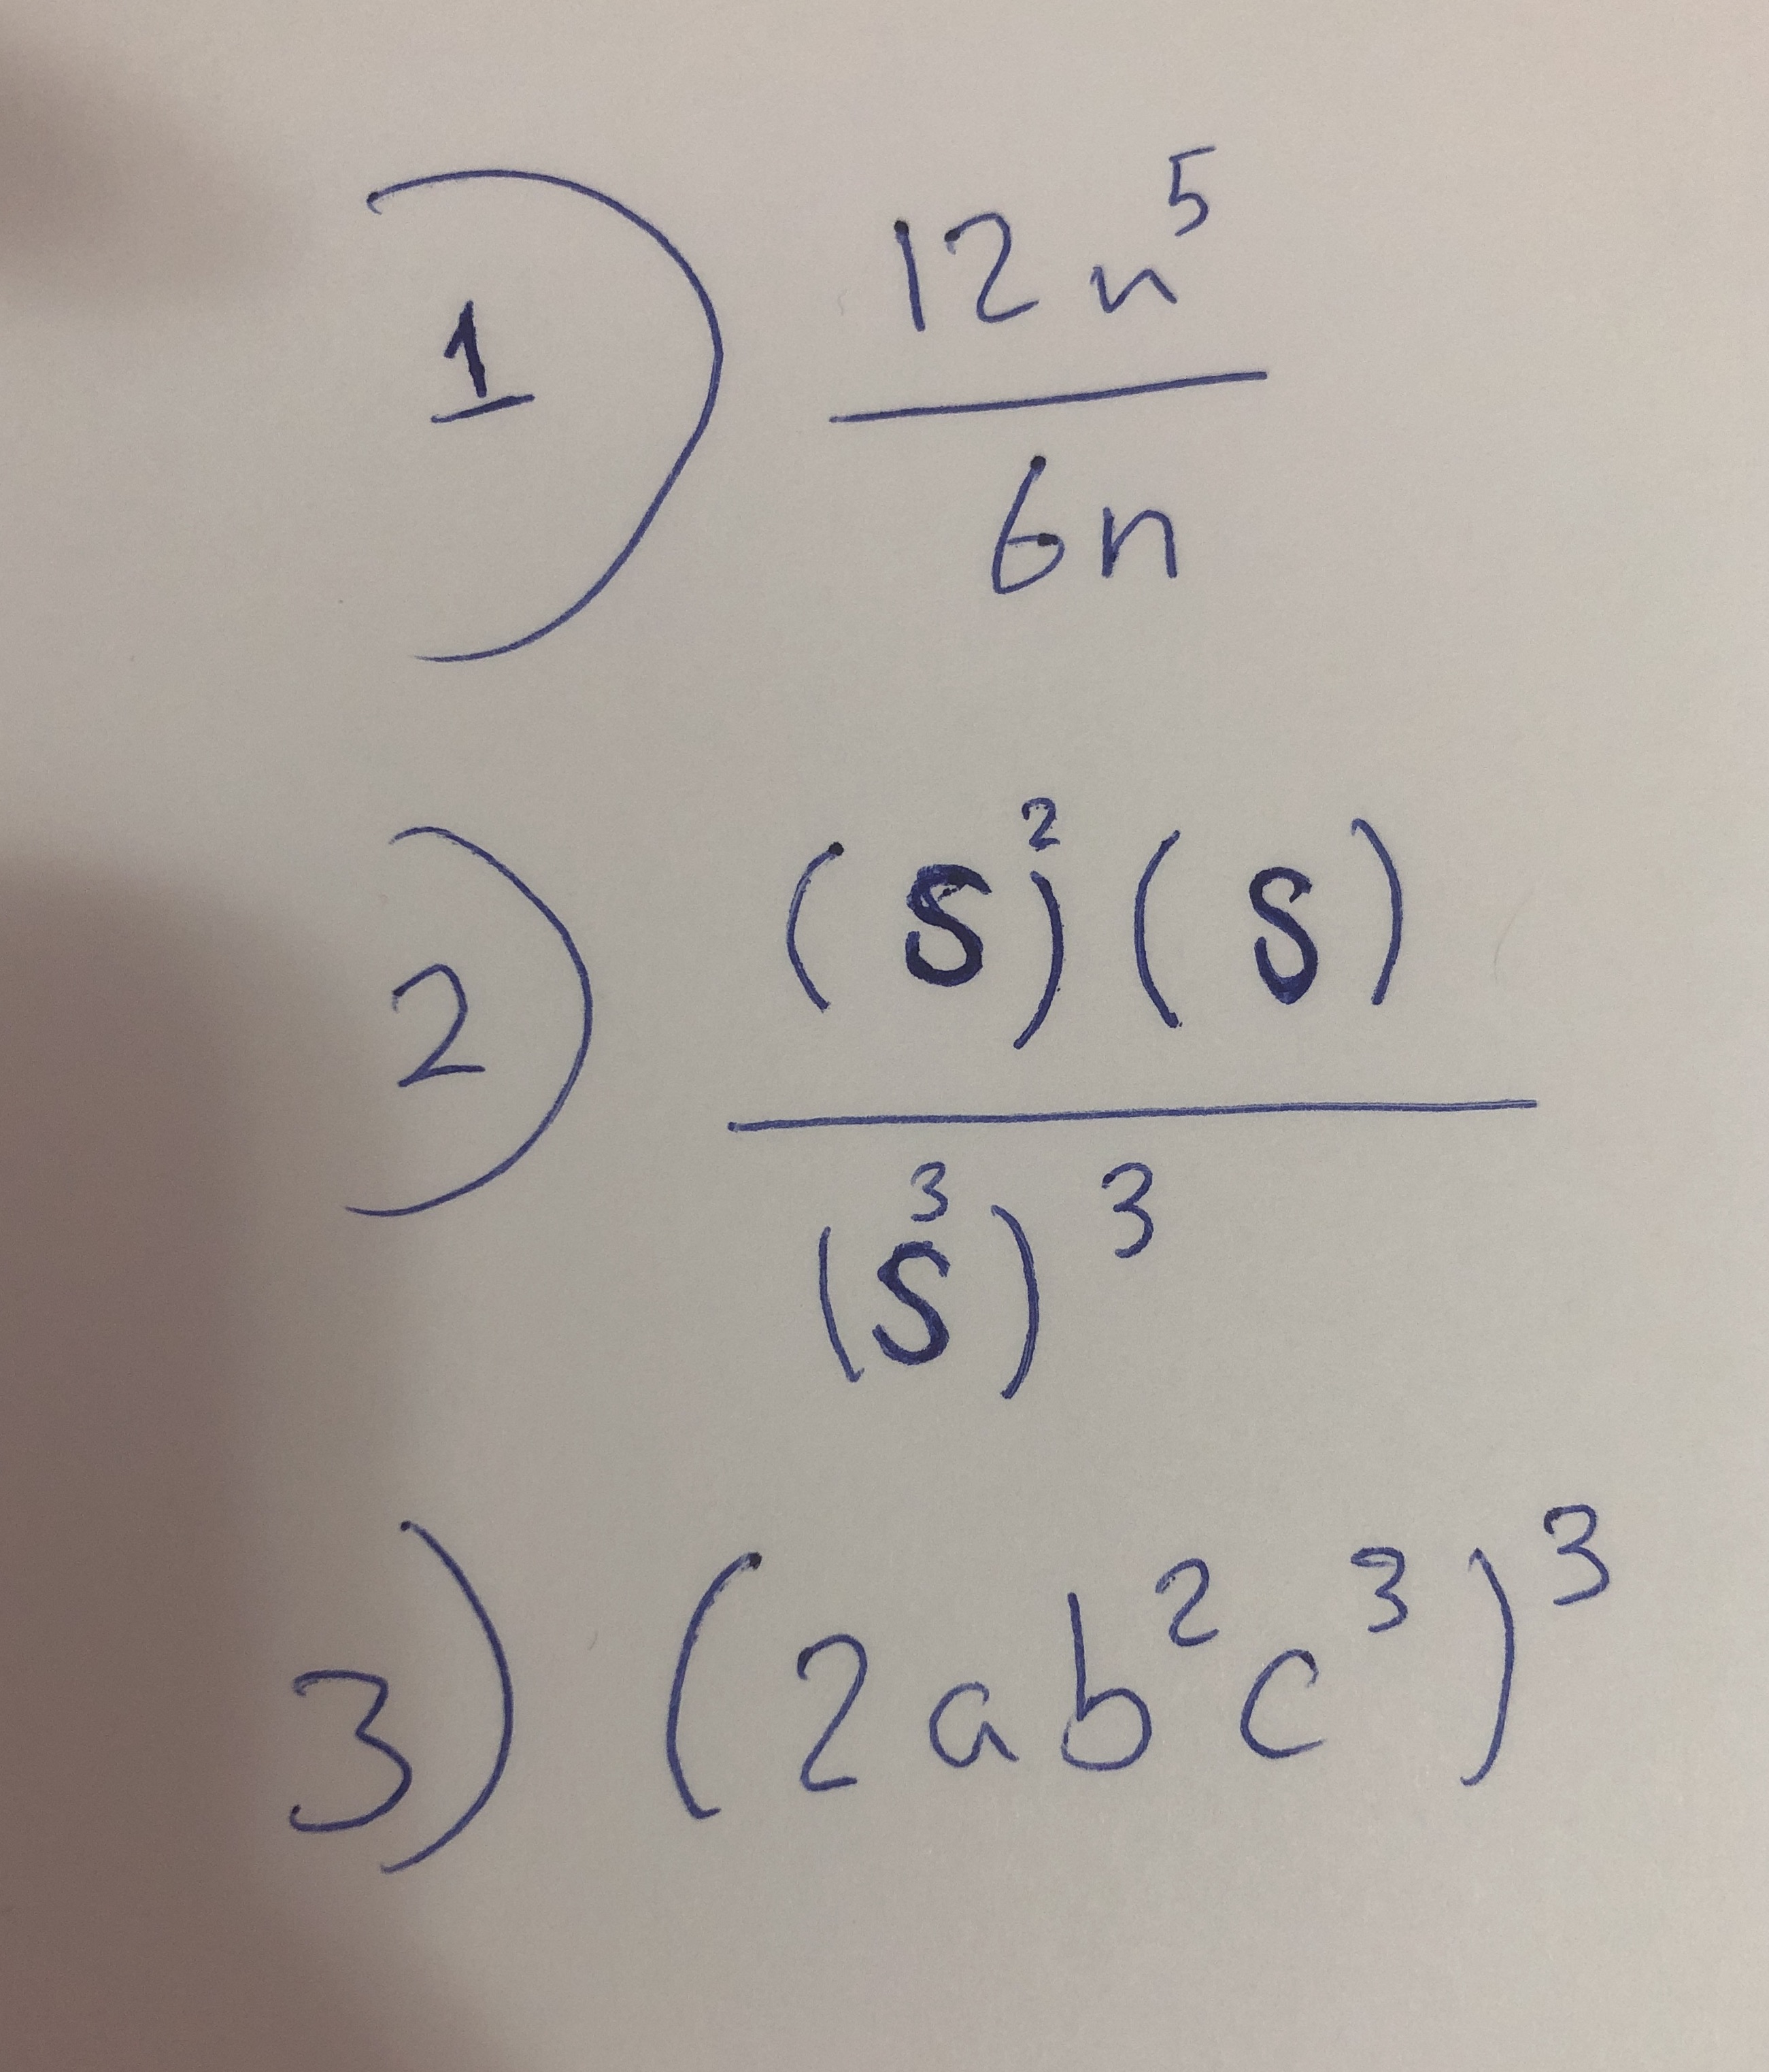 1) 12n⁵ / 6n
2) (S)²(S) / (S³)³
3) (2ab²c³)³